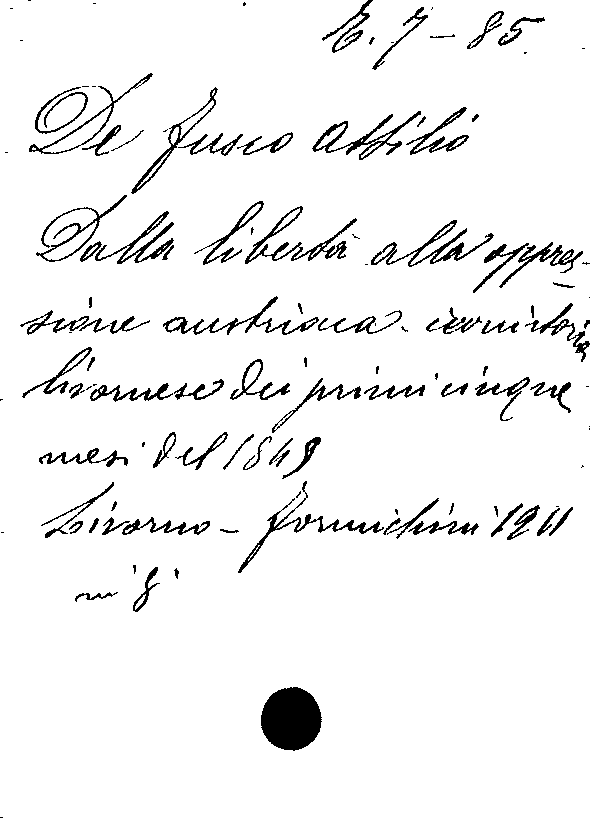 E. 7 - 85
De Fusco Attilio
Dalla libertà alla oppres-
sione austriaca -
livornese dei primi cinque
mesi del 1849
Livorno - Formichini 1911
in 8°